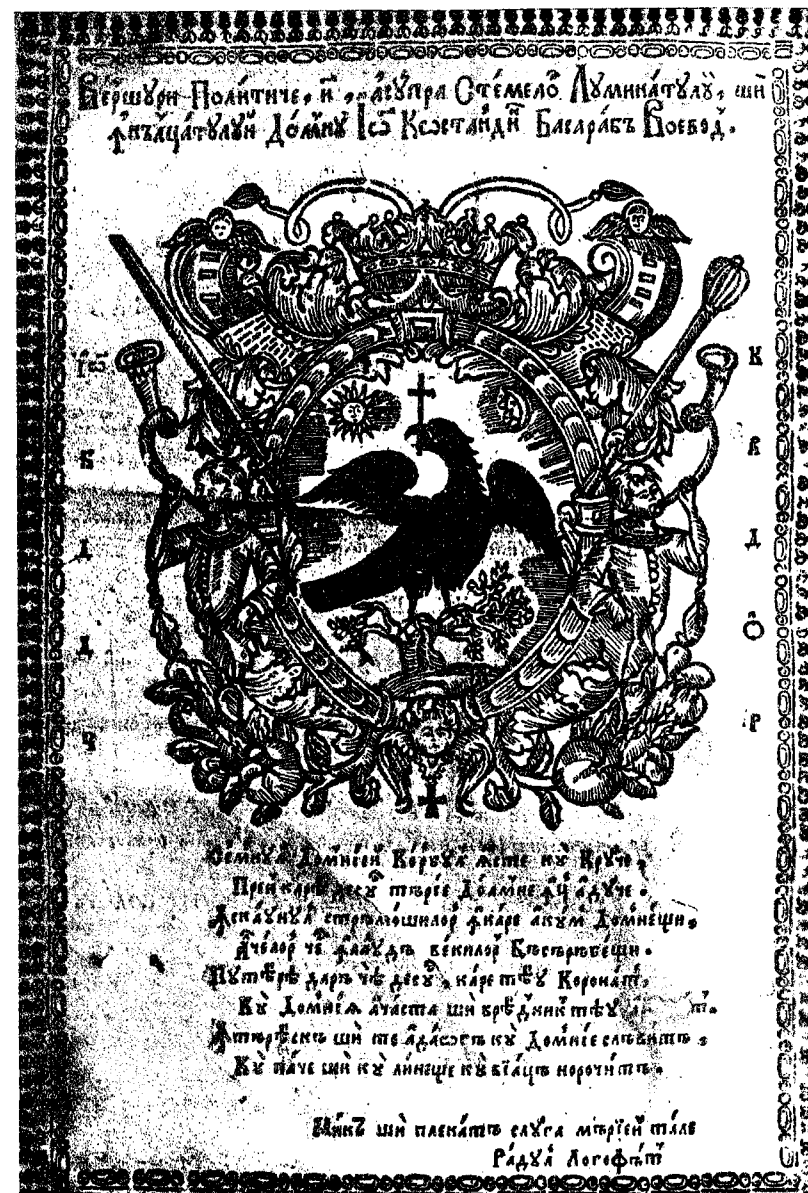 Вершури Политиче, асупра Стемелѡ Луминатулꙋ, ши
ꙟнълцатулуй Домнꙋ Іѡ Кѡстандин Басарабъ Воевод.
Іѡ К
Б В
Д Д
Ѻ
Ч Р
Семнул Домнеей Корбул ѧсте кꙋ Круче,
Прен каре десус търіе Доамне ꙟц адуче.
ꙟ скаунул стръмошилор ꙟ каре акум Домнещи,
Ачелор че ꙟ лаудъ векилор Бъсърѣбещи.
Путѣрѣ даръ чѣ десус, каре тѣу Коронат,
Кꙋ Домніѧ ачаста ши врѣдник тѣу
ꙟтърѣскъ ши те адаѡгъ кꙋ Домніе слъвитъ.
Кꙋ паче ши кꙋ линище кꙋ віацъ норочитъ.
Мик ши плекатъ слуга мъріей тале
Радул Логофът